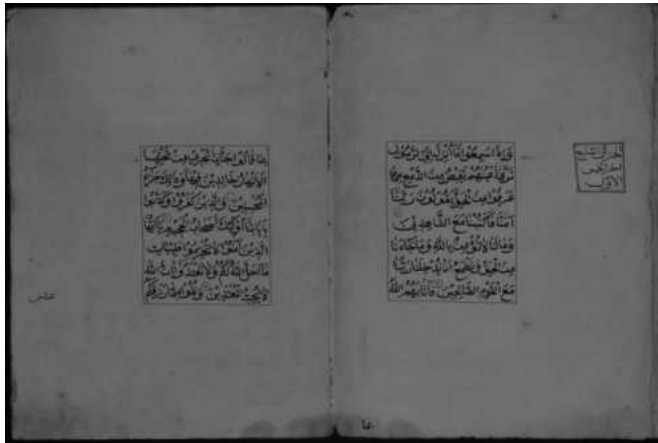 وإذا سمعوا ما أنزل إلى الرسول
ترى أعينهم تفيض من الدمع مما
عرفوا من الحق يقولون ربنا
آمنا فاكتبنا مع الشاهدين
وما لنا لا نؤمن بالله وما جاءنا
من الحق ونطمع أن يدخلنا ربنا
مع القوم الصالحين فأثابهم الله
الجزء السابع
الأول
بما قالوا جنات تجري من تحتها
الأنهار خالدين فيها وذلك جزاء
المحسنين والذين كفروا وكذبوا
بآياتنا أولئك أصحاب الجحيم يا أيها
الذين آمنوا لا تحرموا طيبات
ما أحل الله لكم ولا تعتدوا إن الله
لا يحب المعتدين وكلوا مما رزقكم
عشر